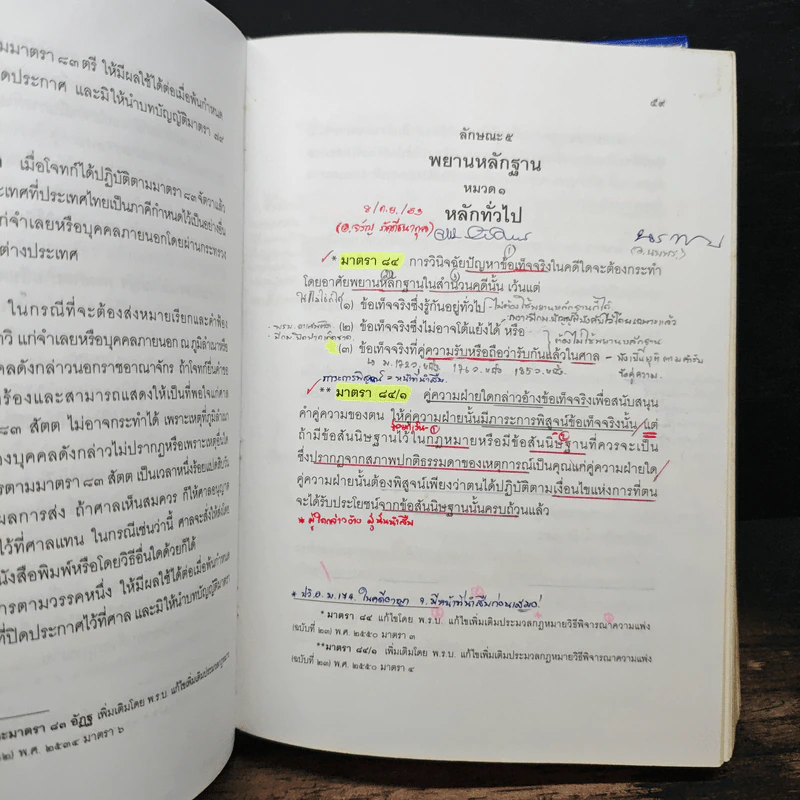 มมาตรา ๘๓ ตรี ให้มีผลใช้ได้ต่อเมื่อพ้นกำหนด
ปิดประกาศ และมิให้นำบทบัญญัติมาตรา ๘๔
เมื่อโจทก์ได้ปฏิบัติตามมาตรา ๘๓ จัตวาแล้ว
ประเทศที่ประเทศไทยเป็นภาคีกำหนดไว้เป็นอย่างอื่น
แก่จำเลยหรือบุคคลภายนอกโดยผ่านกระทรวง
ต่างประเทศ
ในกรณีที่จะต้องส่งหมายเรียกและคำฟ้อง
แก่จำเลยหรือบุคคลภายนอก ณ ภูมิลำเนาหรือ
คคลดังกล่าวนอกราชอาณาจักร ถ้าโจทก์ยื่นคำขอ
ร้องและสามารถแสดงให้เป็นที่พอใจแก่ศาล
๘๓ สัตต ไม่อาจกระทำได้ เพราะเหตุที่ภูมิลำเนา
องบุคคลดังกล่าวไม่ปรากฏหรือเพราะเหตุอื่นใด
รตามมาตรา ๘๓ สัตต เป็นเวลาหนึ่งร้อยแปดสิบวัน
ผลการส่ง ถ้าศาลเห็นสมควร ก็ให้ศาลอนุญาต
ไว้ที่ศาลแทน ในกรณีเช่นว่านี้ ศาลจะสั่งให้ส่งโดย
นังสือพิมพ์หรือโดยวิธีอื่นใดด้วยก็ได้
ารตามวรรคหนึ่ง ให้มีผลใช้ได้ต่อเมื่อพ้นกำหนด
ที่ปิดประกาศไว้ที่ศาล และมิให้นำบทบัญญัติมาตรา
ะมาตรา ๘๓ อัฏฐ เพิ่มเติมโดย พ.ร.บ. แก้ไขเพิ่มเติมประมวลกฎหมาย
๒) พ.ศ. ๒๕๓๔ มาตรา ๖
๕๙
ลักษณะ ๕
พยานหลักฐาน
หมวด ๑
หลักทั่วไป
(อ.จรัญ ภักดีธนากุล)
* มาตรา ๘๔ การวินิจฉัยปัญหาข้อเท็จจริงในคดีใดจะต้องกระทำ
โดยอาศัยพยานหลักฐานในสำนวนคดีนั้น เว้นแต่
(๑) ข้อเท็จจริงซึ่งรู้กันอยู่ทั่วไป
(๒) ข้อเท็จจริงซึ่งไม่อาจโต้แย้งได้ หรือ
(๓) ข้อเท็จจริงที่คู่ความรับหรือถือว่ารับกันแล้วในศาล
ภาระการพิสูจน์ = หน้าที่นำสืบ
** มาตรา ๘๔/๑ คู่ความฝ่ายใดกล่าวอ้างข้อเท็จจริงเพื่อสนับสนุน
คำคู่ความของตน ให้คู่ความฝ่ายนั้นมีภาระการพิสูจน์ข้อเท็จจริงนั้น แต่
ถ้ามีข้อสันนิษฐานไว้ในกฎหมายหรือมีข้อสันนิษฐานที่ควรจะเป็น
ซึ่งปรากฏจากสภาพปกติธรรมดาของเหตุการณ์เป็นคุณแก่คู่ความฝ่ายใด
คู่ความฝ่ายนั้นต้องพิสูจน์เพียงว่าตนได้ปฏิบัติตามเงื่อนไขแห่งการที่ตน
จะได้รับประโยชน์จากข้อสันนิษฐานนั้นครบถ้วนแล้ว
* ผู้ใดกล่าวอ้าง ผู้นั้นนำสืบ
* ป.วิ.อ. ม.174 ในคดีอาญา จ. มีหน้าที่นำสืบก่อนเสมอ
* มาตรา ๘๔ แก้ไขโดย พ.ร.บ. แก้ไขเพิ่มเติมประมวลกฎหมายวิธีพิจารณาความแพ่ง
(ฉบับที่ ๒๓) พ.ศ. ๒๕๕๐ มาตรา ๓
** มาตรา ๘๔/๑ เพิ่มเติมโดย พ.ร.บ. แก้ไขเพิ่มเติมประมวลกฎหมายวิธีพิจารณาความแพ่ง
(ฉบับที่ ๒๓) พ.ศ. ๒๕๕๐ มาตรา ๔